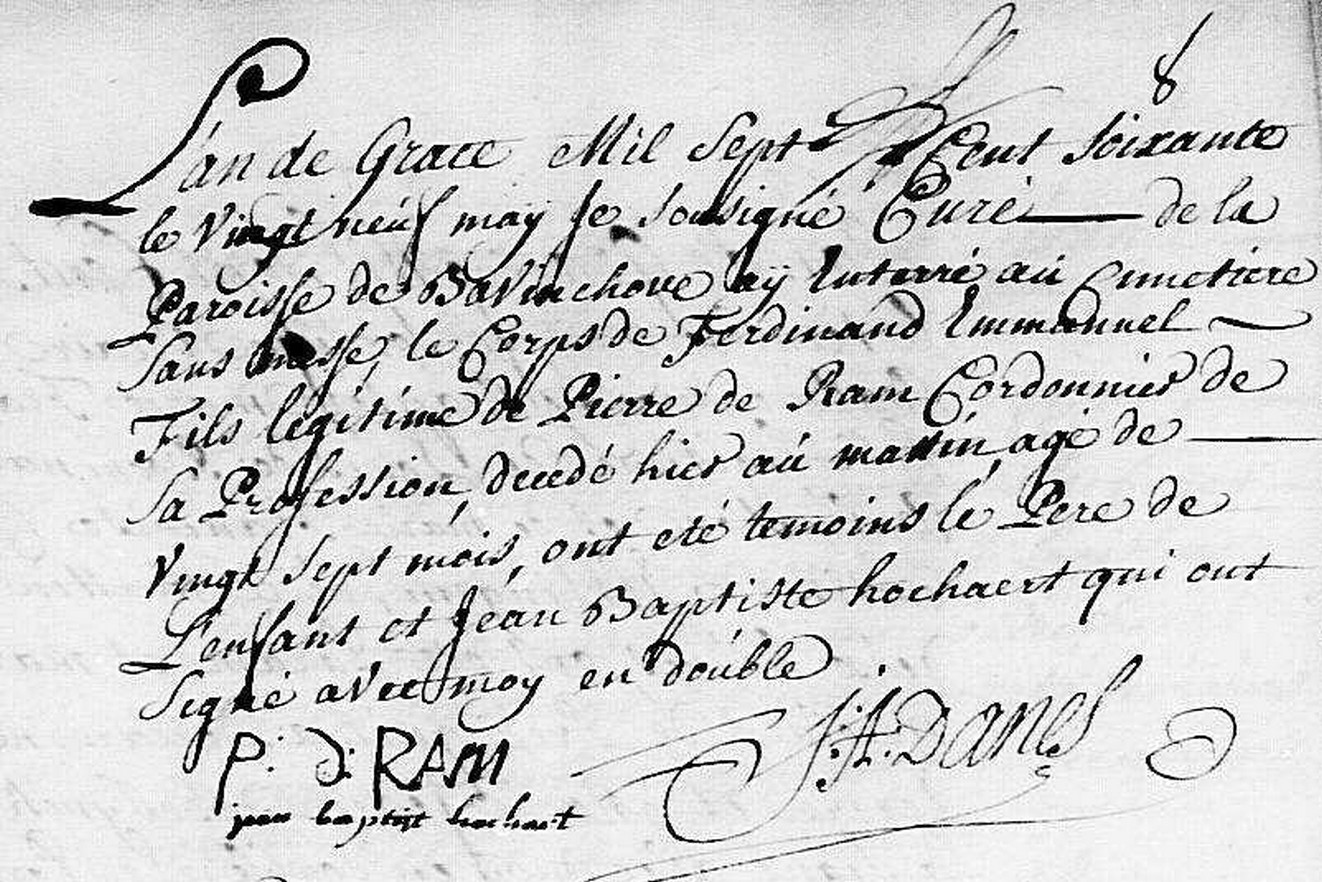 8
L'an de Grace Mil Sept Cent Soixante
le Vingt neuf may Je Sousigné Curé de la
Paroisse de BaVinchove ay Enterré au Cimetiere
Sans messe, le Corps de Ferdinand Emmanuel
Fils legitime de Pierre de Ram Cordonnier de
Sa Profession, decedé hier au mattin, agé de
Vingt Sept mois, ont eté temoins le Pere de
L'enfant et Jean Baptiste hochaert qui ont
Signé aVec moy en double
P. D: RAM
J. F. DANEL
jean baptist hochart